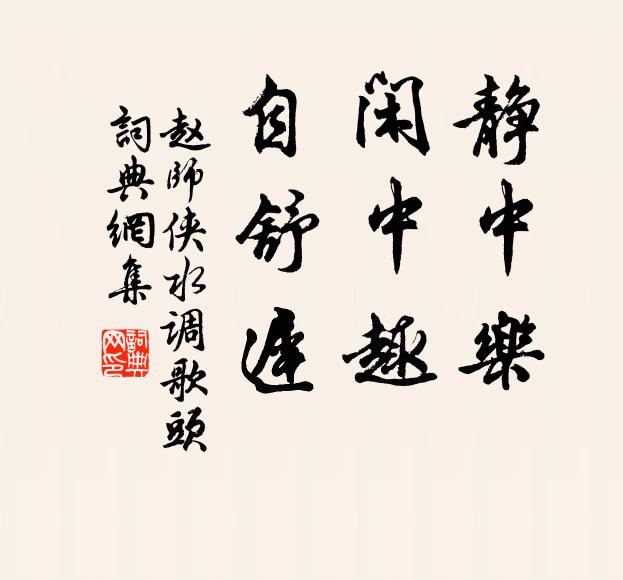 静中樂
闲中趣
自舒遲
赵師侠水调歌頭
詞典網集
詞典网印